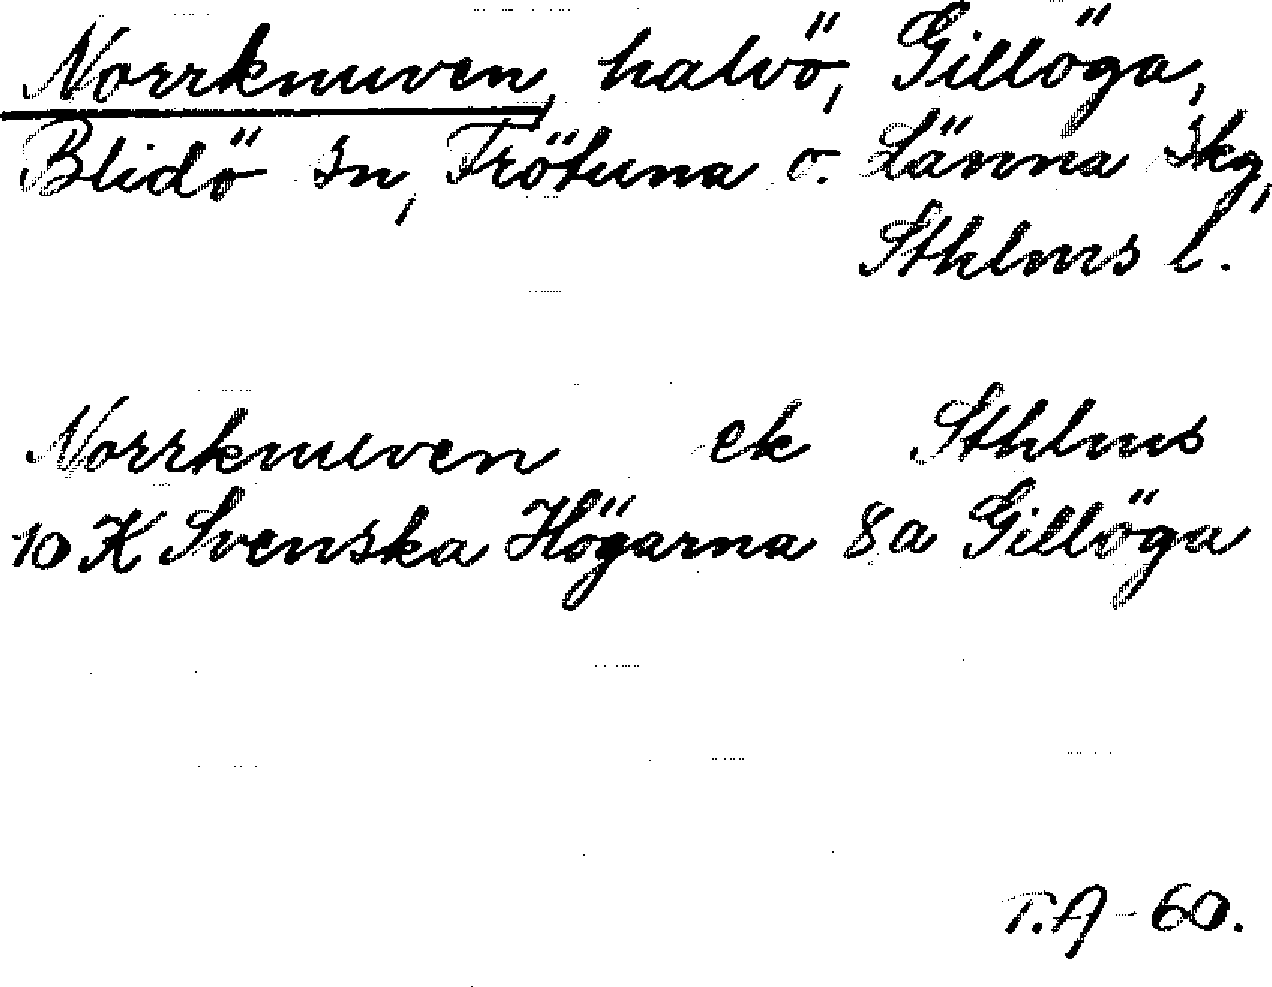 Norrknuven, halvö, Gillöga,
Blidö sn, Frötuna o. Länna skg,
Sthlms l.
Norrknuven ek Sthlms
10 K Svenska Högarna 8a Gillöga
T.A-60.